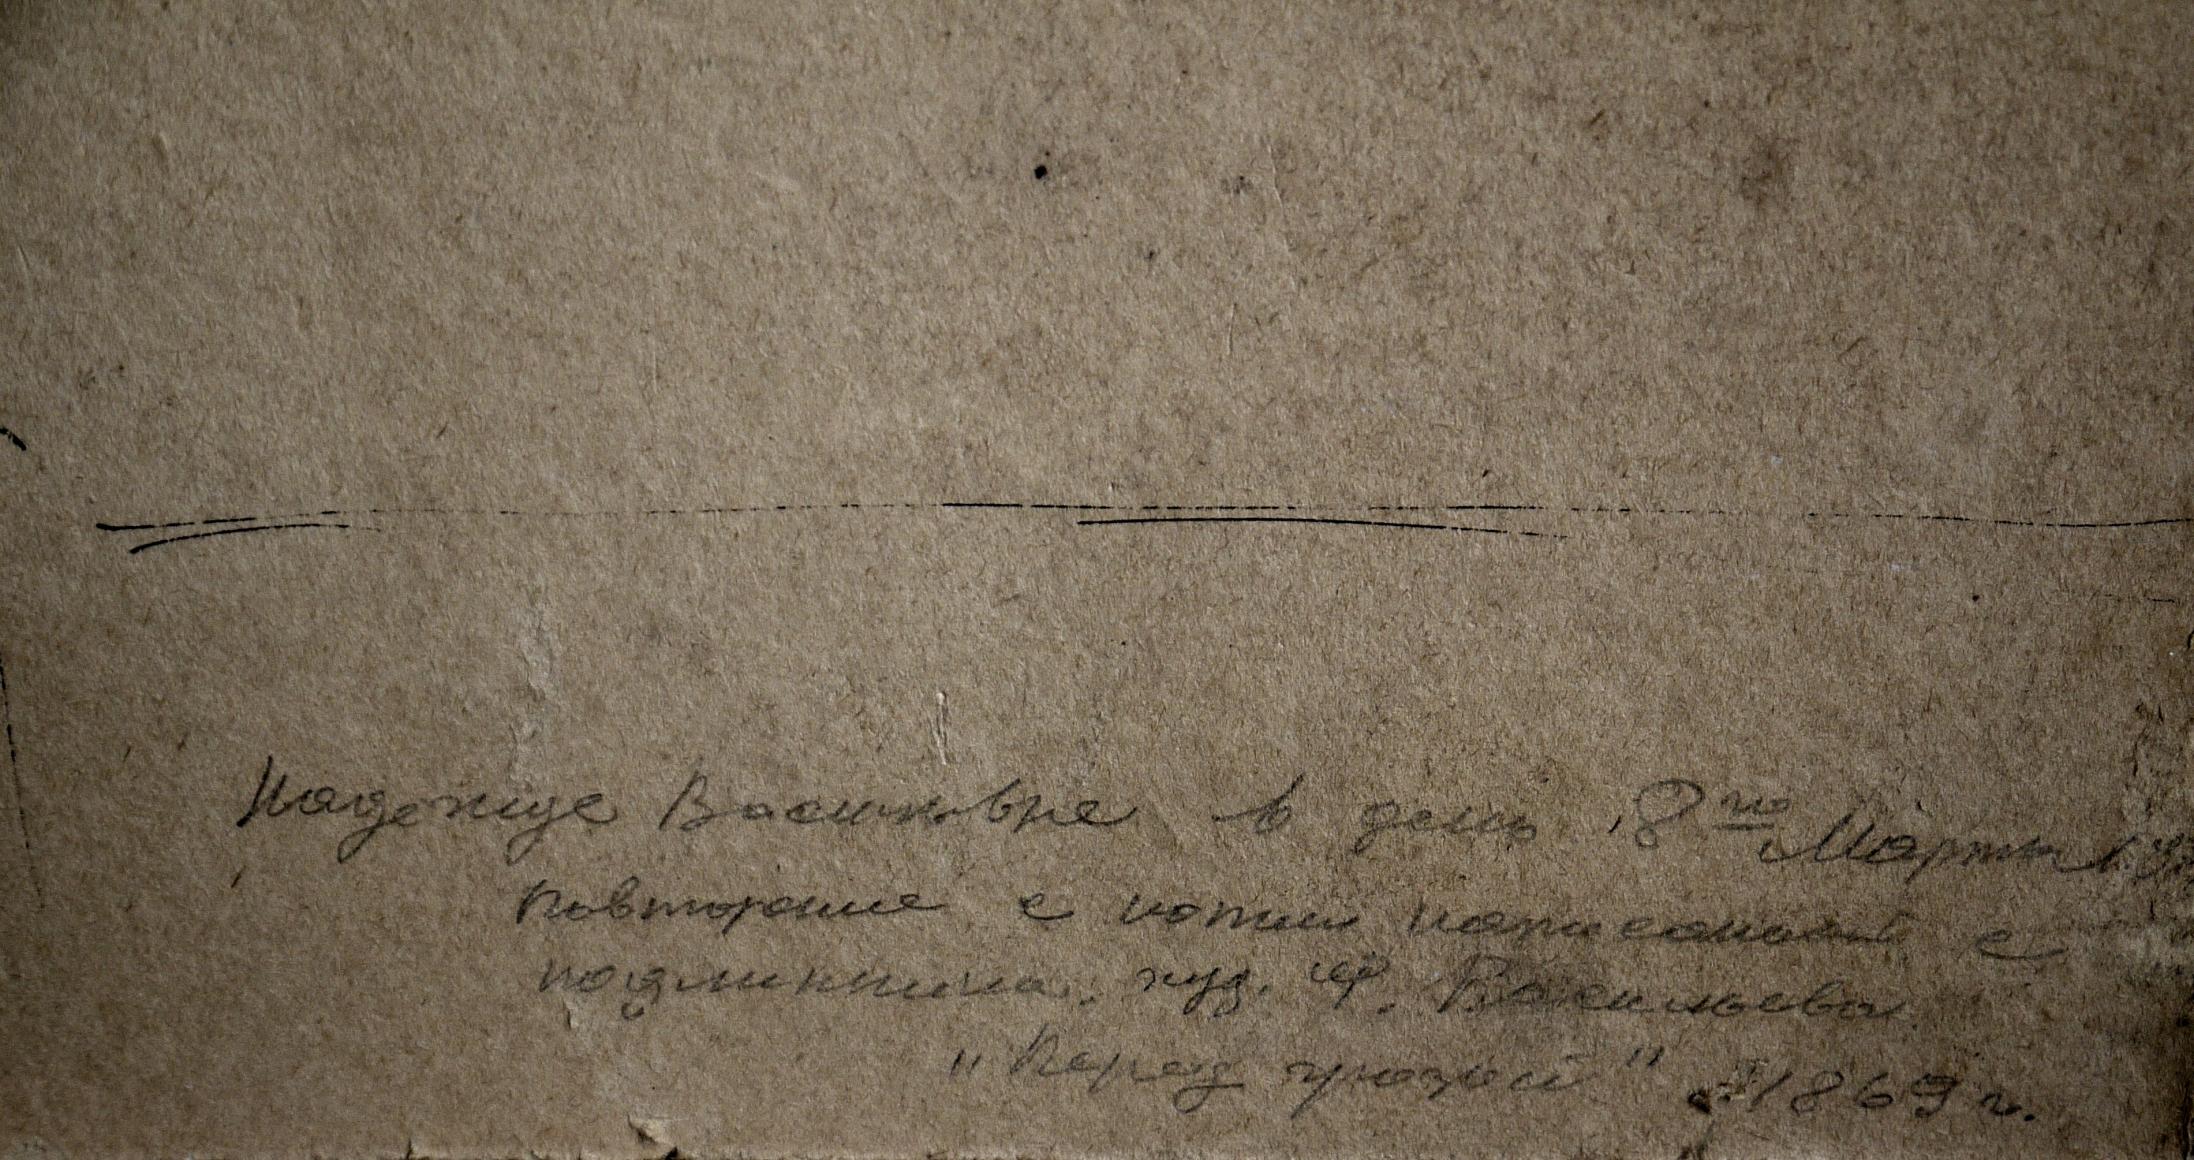 Надежде Васильевне в день 8го Марта
повторение с копии написанной с
подлинника. худ. Ф. Васильева
"Перед грозой" 1869 г.